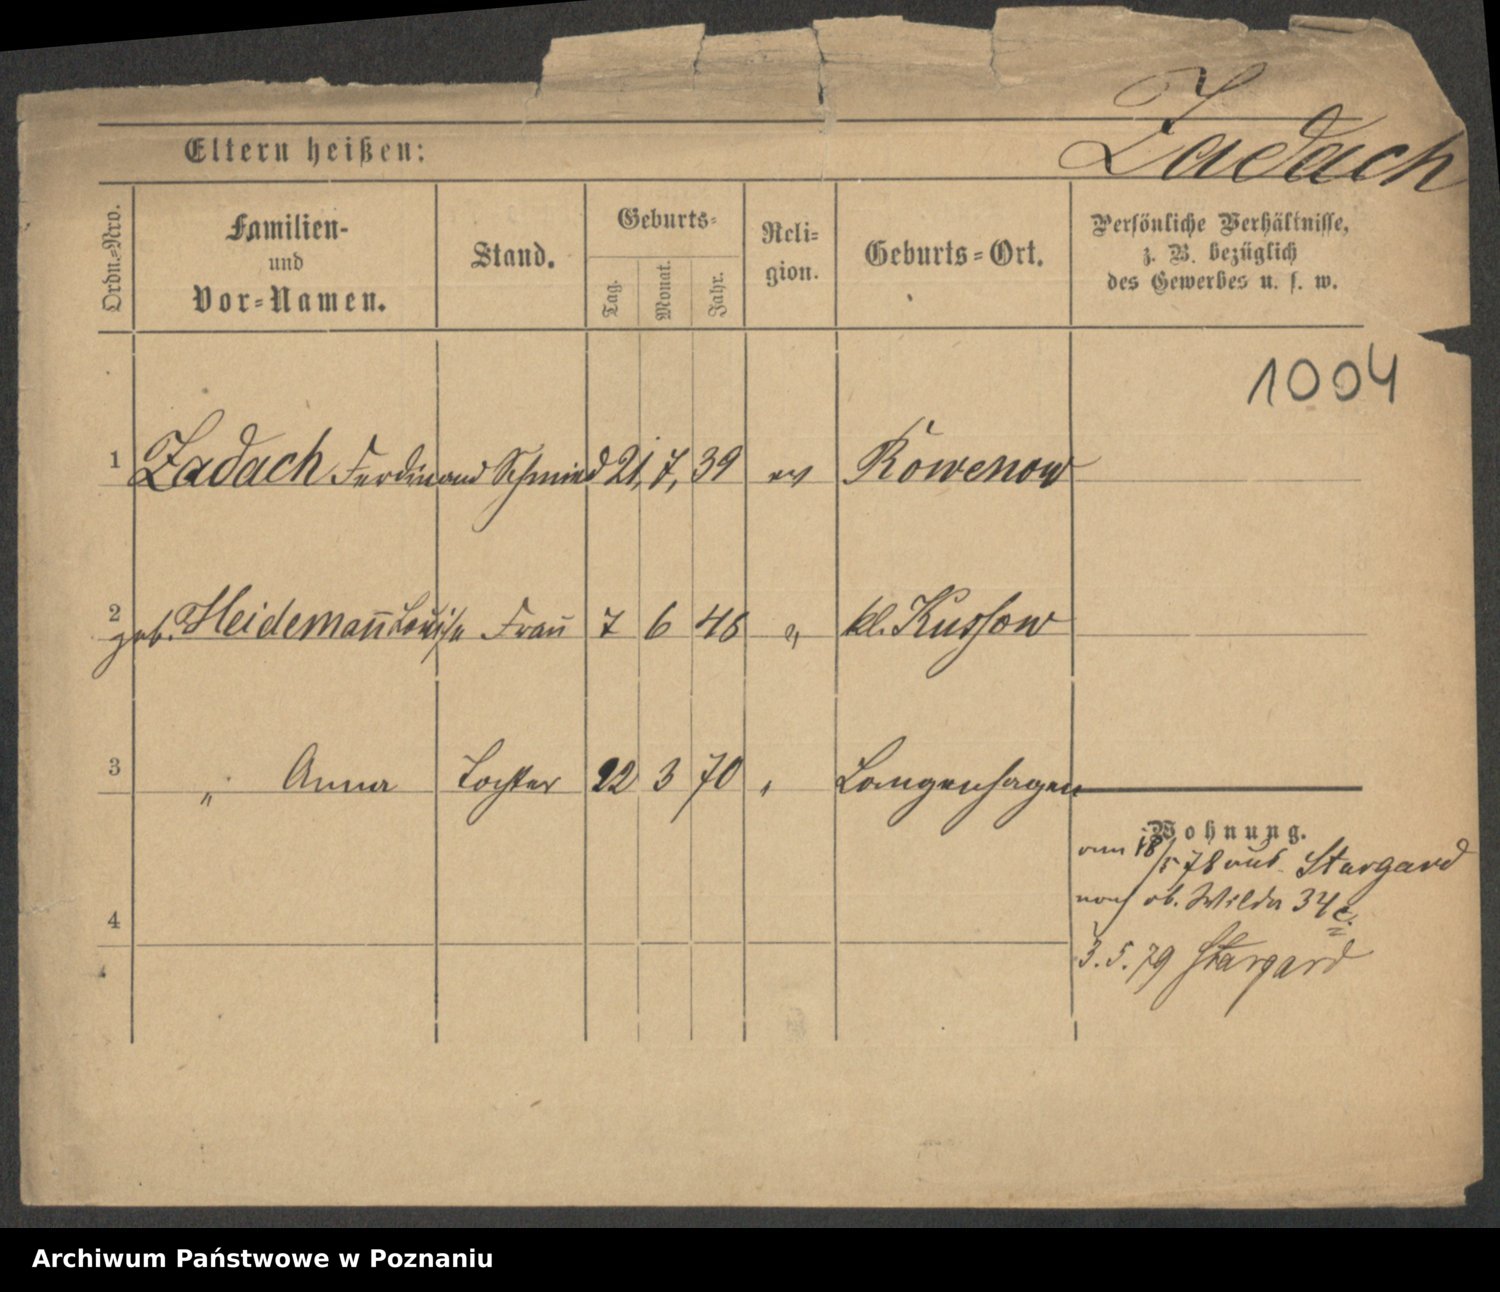 Zadach
Eltern heißen:
Ordn.-Nro.
Familien-
und
Vor-Namen.
Stand.
Geburts-
Tag.
Monat.
Jahr.
Reli-
gion.
Geburts-Ort.
Persönliche Verhältnisse,
z. B. bezüglich
des Gewerbes u. s. w.
1004
1 Zadach Ferdinand Schmied 21, 7, 39 ev Rowenow
2 geb. Heidemañ Louise Frau 7 6 46 " kl. Kussow
3 " Anna Tochter 22 3 70 " Langenhagen
Wohnung.
am 18/5 78 aus Stargard
nach ob. Wilda 34 c.
4
3. 5. 79 Stargard
Archiwum Państwowe w Poznaniu